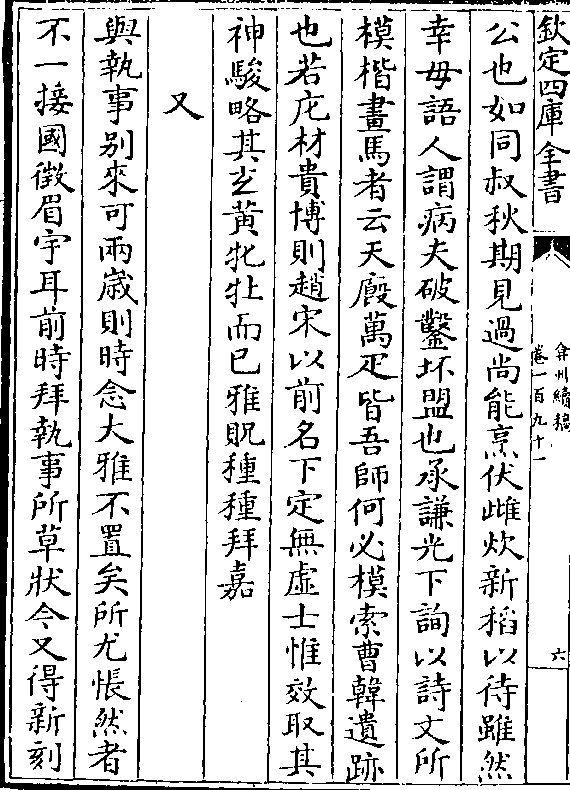 欽定四庫全書
弇州續稿
卷一百九十一
六
公也如同叔秋期見過尚能烹伏雌炊新稻以待雖然
幸毋語人謂病夫破鑿坏盟也承謙光下詢以詩文所
模楷畫馬者云天廄萬疋皆吾師何必模索曹韓遺跡
也若庀材貴博則趙宋以前名下定無虛士惟效取其
神駿略其玄黃牝牡而已雅貺種種拜嘉
又
與執事别來可兩歲則時念大雅不置矣所尤悵然者
不一接國徵眉宇耳前時拜執事所草狀今又得新刻